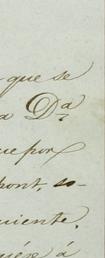 que se
a D.ª
ue por
pont, so-
uiente.